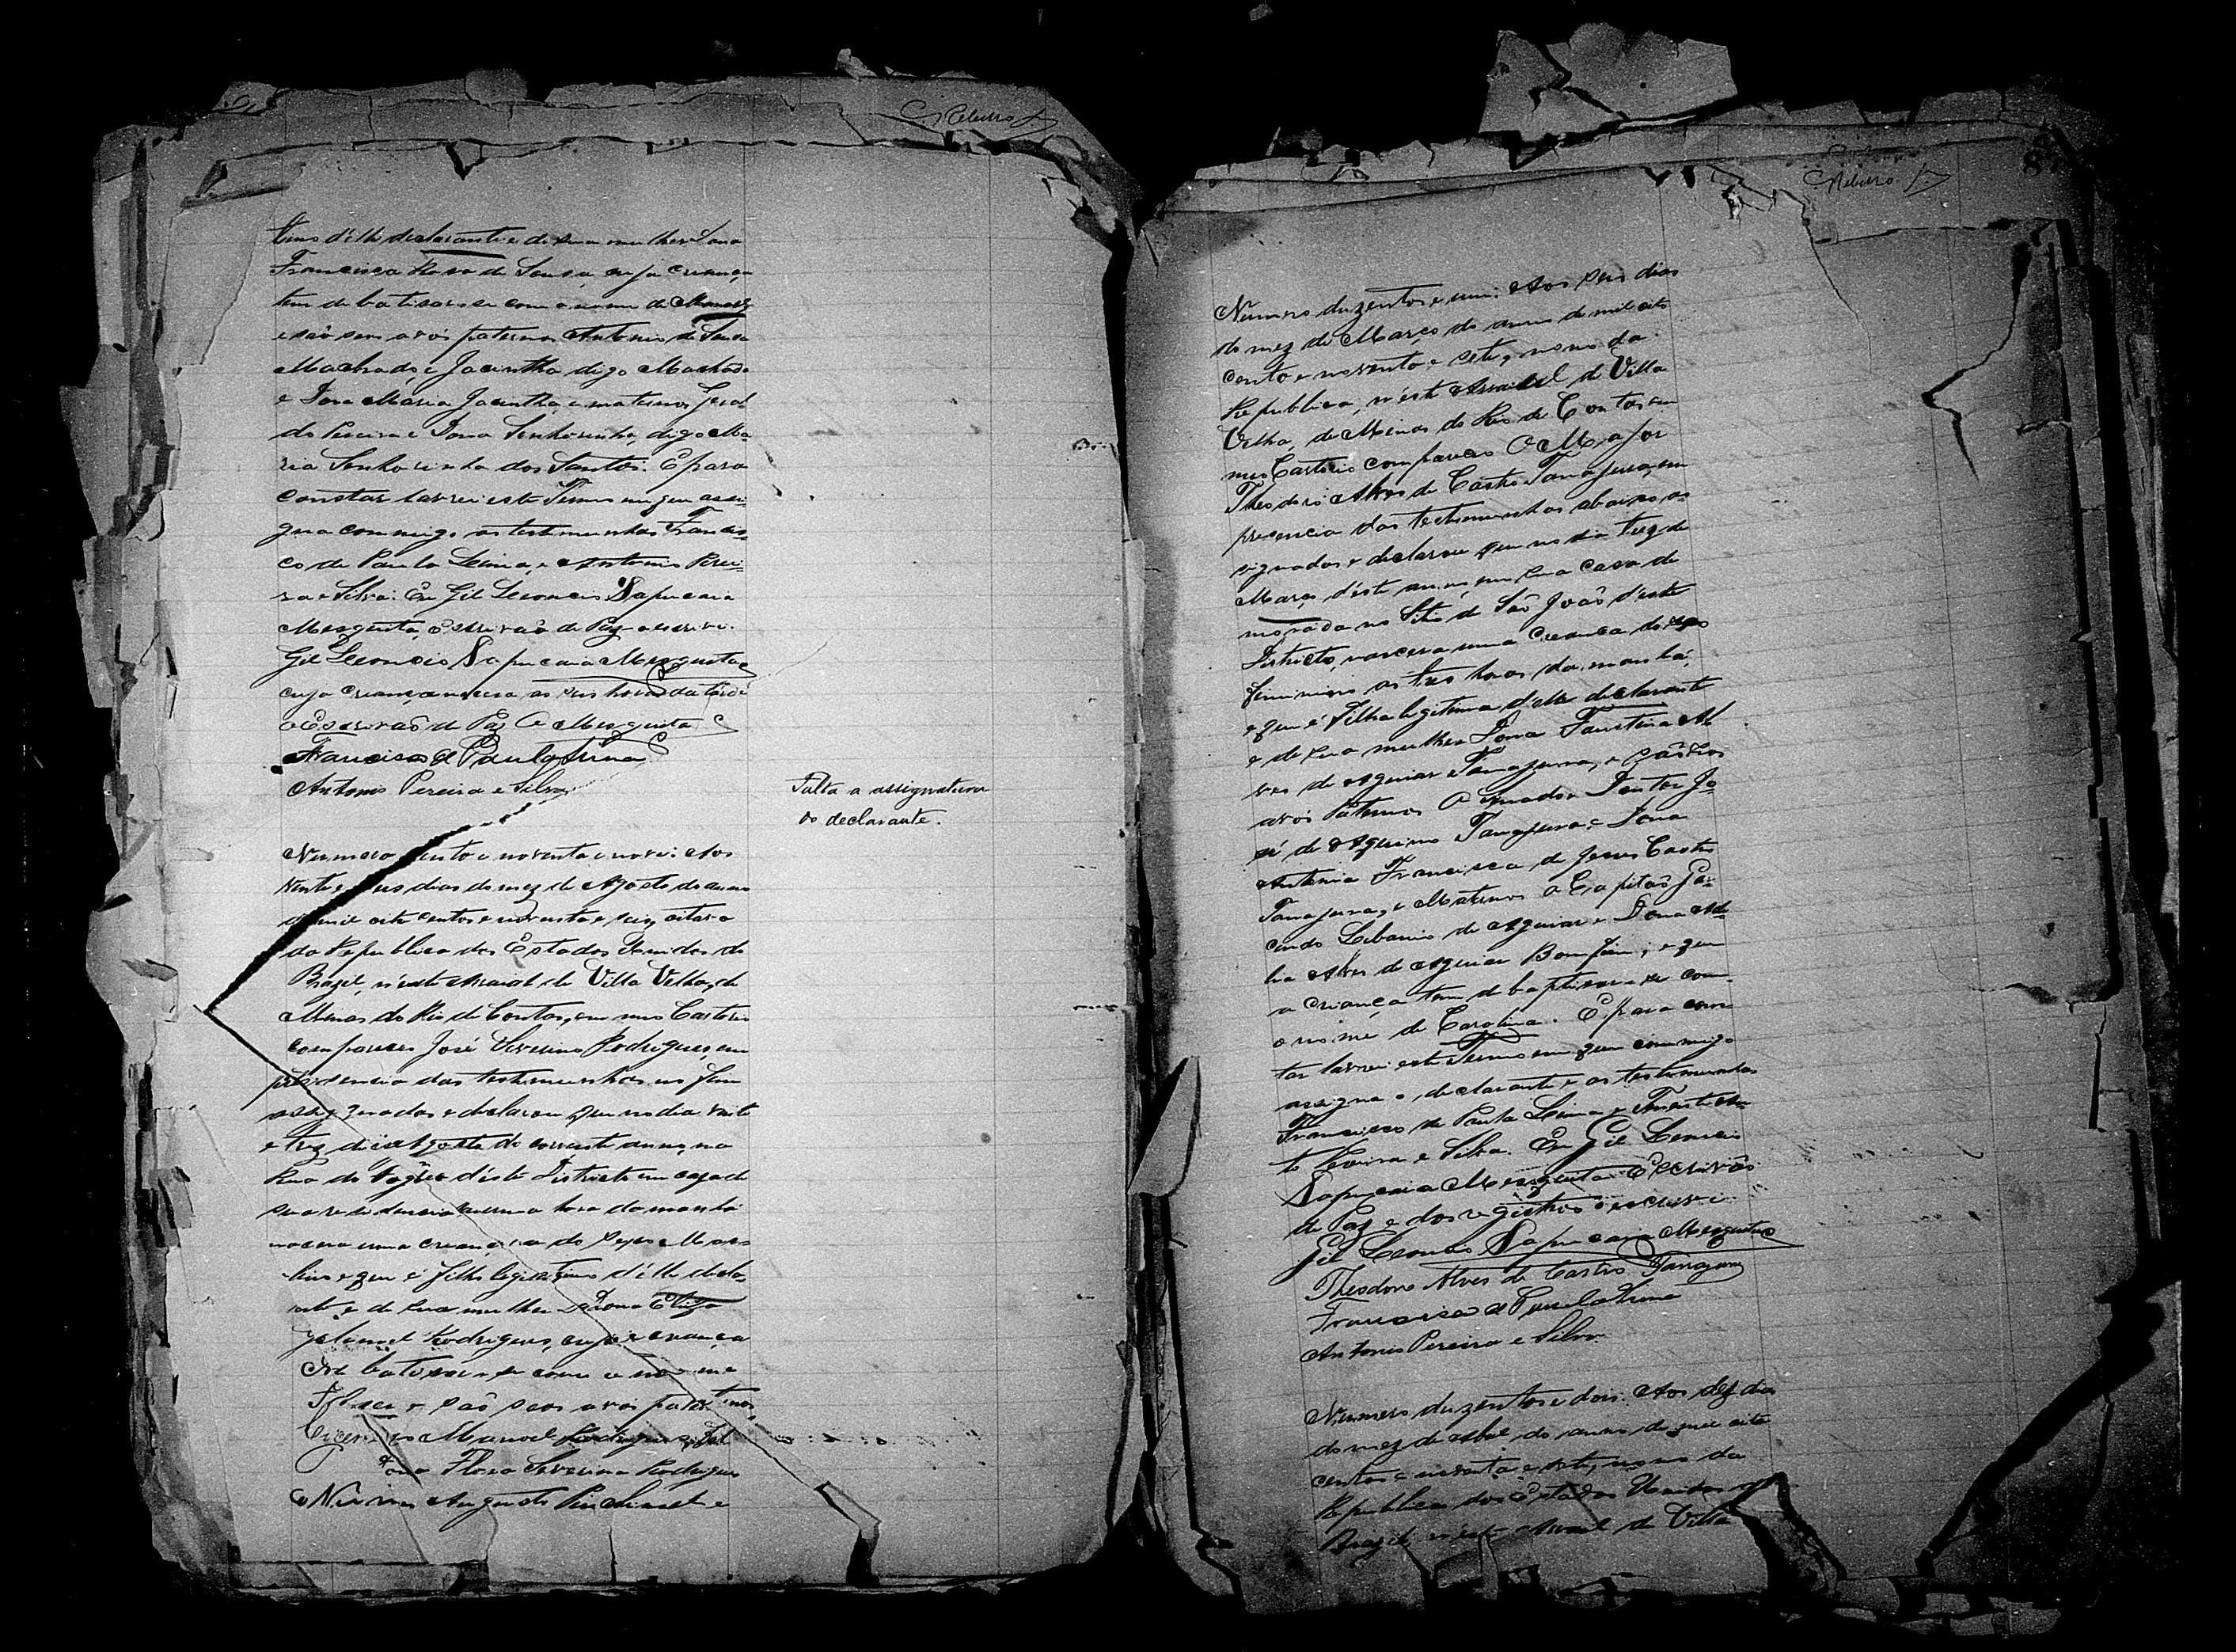 CRibeiro
timo d'elle declarante e de sua mulher Dona
Francisca Rosa de Sousa, cuja criança
tem de batisar-se com o nome de
e são seus avós paternos Antonio de Sousa
Machado e Jacintha digo Machado
e Dona Maria Jacintha, e maternos Geral-
do Pereira e Dona Senhorinha, digo Ma-
ria Senhorinha dos Santos. E para
constar lavrei este Termo em que assi-
gna commigo as testemunhas Francis-
co de Paula Lima, e Antonio Perei-
ra e Silva. Eu Gil Leoncio Sapucaia
Mesquita, Escrivão de Paz o escrevi.
Gil Leoncio Sapucaia Mesquita
cuja criança nascera as seis horas da tarde
o Escrivão de Paz Mesquita
Francisco de Paula Lima
Antonio Pereira e Silva
Falta a assignatura
do declarante.
Numero cento e noventa e nove: Aos
vinte e seis dias do mez de Agosto do anno
de mil oito centos e noventa e seis, oitavo
da Republica dos Estados Unidos do
Brazil, n'este Arraial de Villa Velha, de
Minas do Rio de Contas, em meo Cartorio
compareceo José Severino Rodrigues, em
presencia das testemunhas no fim
assignadas e declarou que no dia vinte
e trez de Agosto do corrente anno, na
Rua do d'este Districto em caza de
sua residencia a uma hora da manhã
nascera uma creança do sexo Mas-
culino e que é filho legitimo d'elle decla-
rante, e de sua mulher Dona Eliza
Rodrigues, cuja creança
de batisar-se com o nome
e são seos avós paternos
Manoel Rodrigues
Dona Flora Severina Rodrigues
Augusto Pimentel e
CRibeiro
87
Numero duzentos e um: Aos seis dias
do mez de Março do anno de mil oito
cento e noventa e sete, nono da
Republica, n'este Arraial de Villa
Velha, de Minas do Rio de Contas em
meo Cartorio compareceo O Major
Theodoro Alves de Castro Tanajura, em
presencia das testemunhas abaixo as-
signadas e declarou que no dia trez de
Março d'este anno, em sua casa de
morada no Sitio de São João d'este
Districto, nascera uma Creança do sexo
feminino as tres horas da manhã,
e que é filha legitima d'elle declarante
e de sua mulher Dona Faustina Al-
ves de Aguiar Tanajura, e são seos
avós Paternos O Senador Doutor Jo-
sé de Aquino Tanajura e Dona
Antonia Francisca de Jesus Castro
Tanajura, e Maternos o Capitão
Libanio de Aguiar e Dona
Alves de Aguiar Bomfim; e que
a criança tem de baptisar-se com
o nome de Carolina. E para cons-
tar lavrei este Termo em que commigo
assigna o declarante e as testemunhas
Francisco de Paula Lima e
Pereira e Silva. Eu Gil Leoncio
Sapucaia Mesquita Escrivão
de Paz e dos registros o escrevi.
Gil Leoncio Sapucaia Mesquita
Theodoro Alves de Castro Tanajura
Francisco de Paula Lima
Antonio Pereira e Silva
Numero duzentos e dois: Aos dez dias
do mez de Abril do anno de mil oito
centos e noventa e sete, nono da
Republica dos Estados Unidos do
Brazil n'este Arraial de Villa